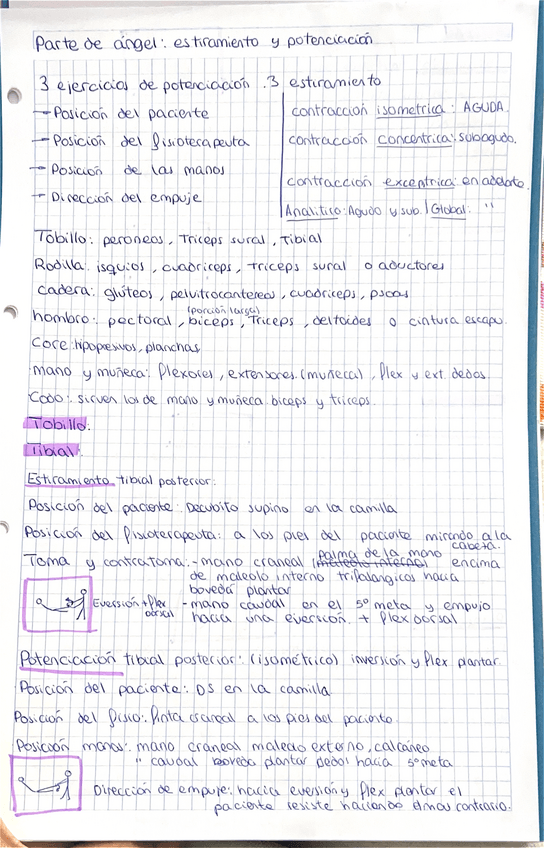 Parte de ángel: estiramiento y potenciación
3 ejercicios de potenciación. 3 estiramiento
- Posición del paciente
- Posición del fisioterapeuta
- Posición de las manos
- Dirección del empuje
contracción isometrica: AGUDA.
contracción concentrica: subaguda.
contracción excentrica: en adelante.
Analitico: Agudo y sub. / Global: "
Tobillo: peroneos, Triceps sural, Tibial
Rodilla: isquios, cuadriceps, Triceps sural o aductores
cadera: glúteos, pelvitrocantereos, cuadriceps, psoas
hombro: pectoral, biceps, (porción larga) Triceps, deltoides o cintura escapu.
Core: hipopresivos, planchas
mano y muñeca: flexores, extensores. (muñeca), flex y ext. dedos.
Codo: sirven los de mano y muñeca. biceps y triceps.
Tobillo:
Tibial:
Estiramiento tibial posterior:
Posición del paciente: Decubito supino en la camilla
Posición del fisioterapeuta: a los pies del paciente mirando a la cabeza.
Toma y contratoma: - mano craneal palma de la mano encima
de maleolo interno trifalangicos hacia
boveda plantar
Eversión + flex dorsal
- mano caudal en el 5º meta y empujo
hacia una eversión. + flex dorsal
Potenciación tibial posterior: (isométrico) inversión y flex plantar.
Posición del paciente: DS en la camilla
Posición del fisio: finta craneal a los pies del paciente.
Posición manos: mano craneal maleolo externo, calcáneo
" caudal boveda plantar dedos hacia 5º meta
Dirección de empuje: hacia eversión y flex plantar el
paciente resiste haciendo el mov contrario.